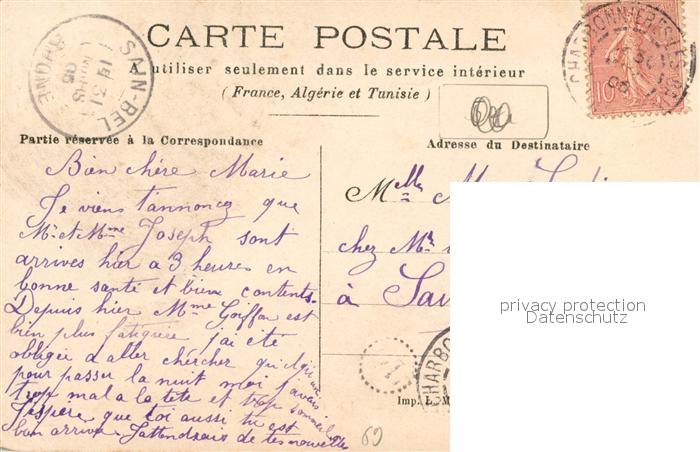 CARTE POSTALE
A utiliser seulement dans le service intérieur
(France, Algérie et Tunisie)
Partie réservée à la Correspondance
Adresse du Destinataire
SAIN-BEL
RHONE
CHARBONNIERES LES
10
Bien chère Marie
Je viens t'annoncez que
Mr et Mme Joseph sont
arrives hier a 3 heures en
bonne santé et bien contents.
Depuis hier Mme Goiffon est
bien plus fatiguée j'ai été
obligée d aller chercher quelqu'un
pour passer la nuit moi j'avais
trop mal a la tete et trop sommeil
J'espère que toi aussi tu est
bien arrivée J'attendrais de tes nouvelles
Melle M
chez Mr
à Sa
CHARBO
1
Imp. L. M
69
privacy protection
Datenschutz